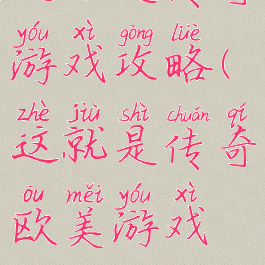 yóu xì gōng lüè
游戏攻略(
zhè jiù shì chuán qí
这就是传奇
ōu měi yóu xì
欧美游戏